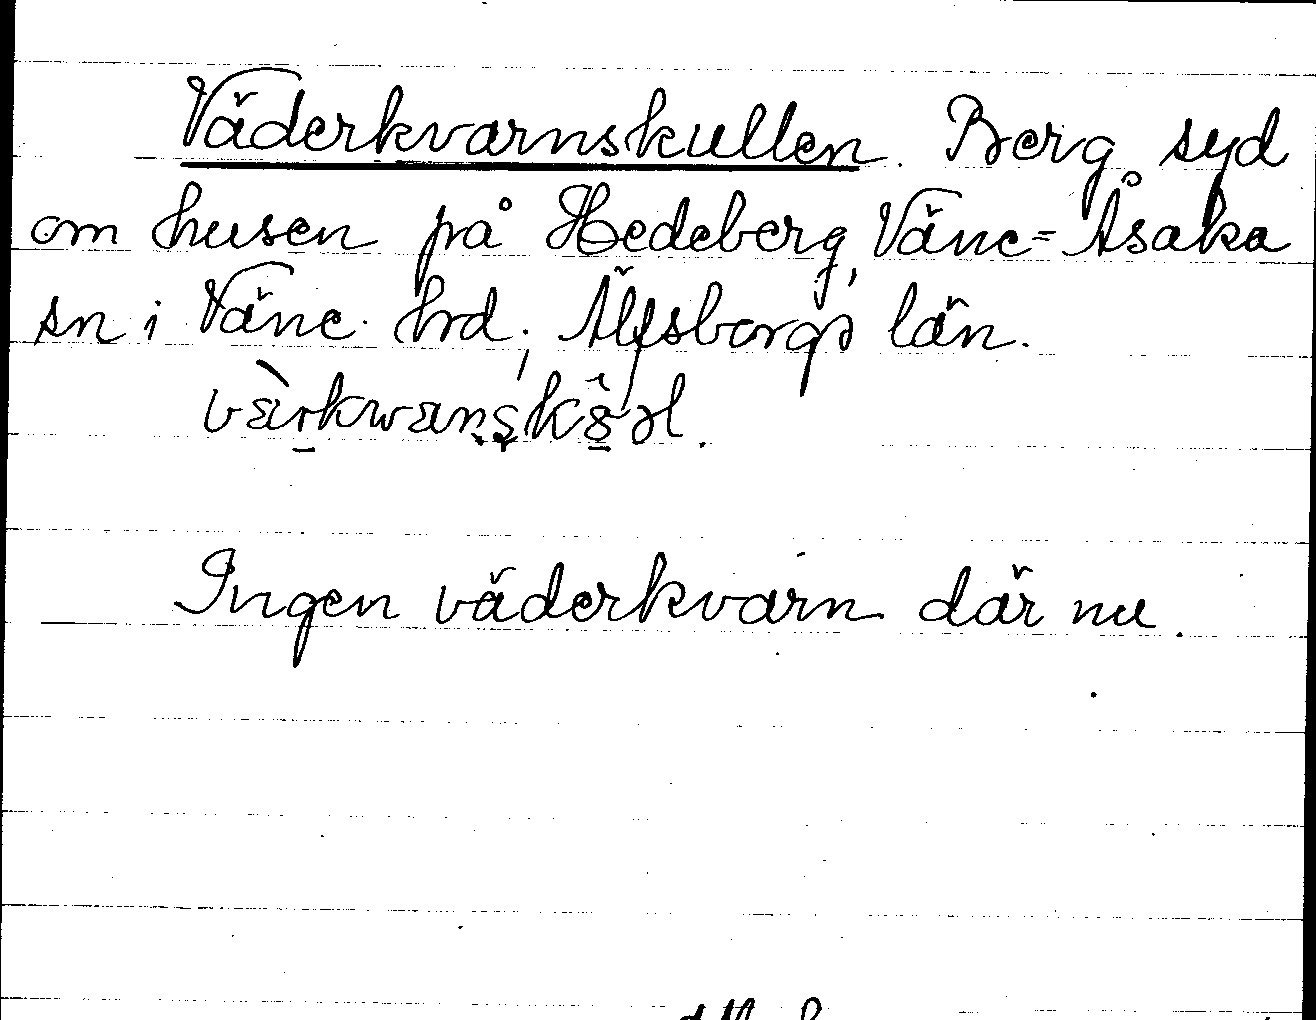 Väderkvarnskullen. Berg syd
om husen på Hedeberg, Väne-Åsaka
sn i Väne hrd, Älfsborgs län.
Ingen väderkvarn där nu.